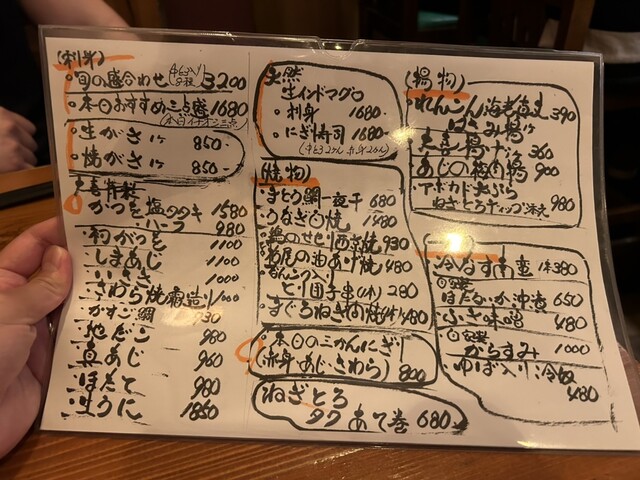 (刺身)
・旬の盛合わせ 3200
・本日おすすめ三点盛 1680
(本日イチオシ三点)
・生がき 1ケ 850-
・焼がき 1ケ 850-
かつを塩タタキ 1580
ハーフ 980
・初がつを 1100
・しまあじ 1100
・いさき 1000
・さわら焼霜造り 1000
・かすご鯛 930
・地だこ 980
・真あじ 960
・ほたて 980
・生うに 1850
天然
生インドマグロ
・刺身 1680-
・にぎり寿司 1680-
(焼物)
・まとう鯛一夜干 680
・うなぎ白焼 1480
・鶏のせせり西京焼 930
・栃尾の油あげ焼 480
・れんこん入り
とり団子串(1本) 280
・まぐろねぎ間焼(1本) 480
・本日の三かんにぎり
(赤身・あじ・さわら) 800
ねぎとろ
タク あて巻 680-
(揚物)
・れんこん海老真丈
はさみ揚1ケ 390
あじの梅肉揚 900
・アボカド天ぷら
ねぎとろディップ添え 980
・冷なす南蛮 1本380
ほたるいか沖漬 650
・ふき味噌 480
からすみ 1000
・ゆば入り冷奴
480